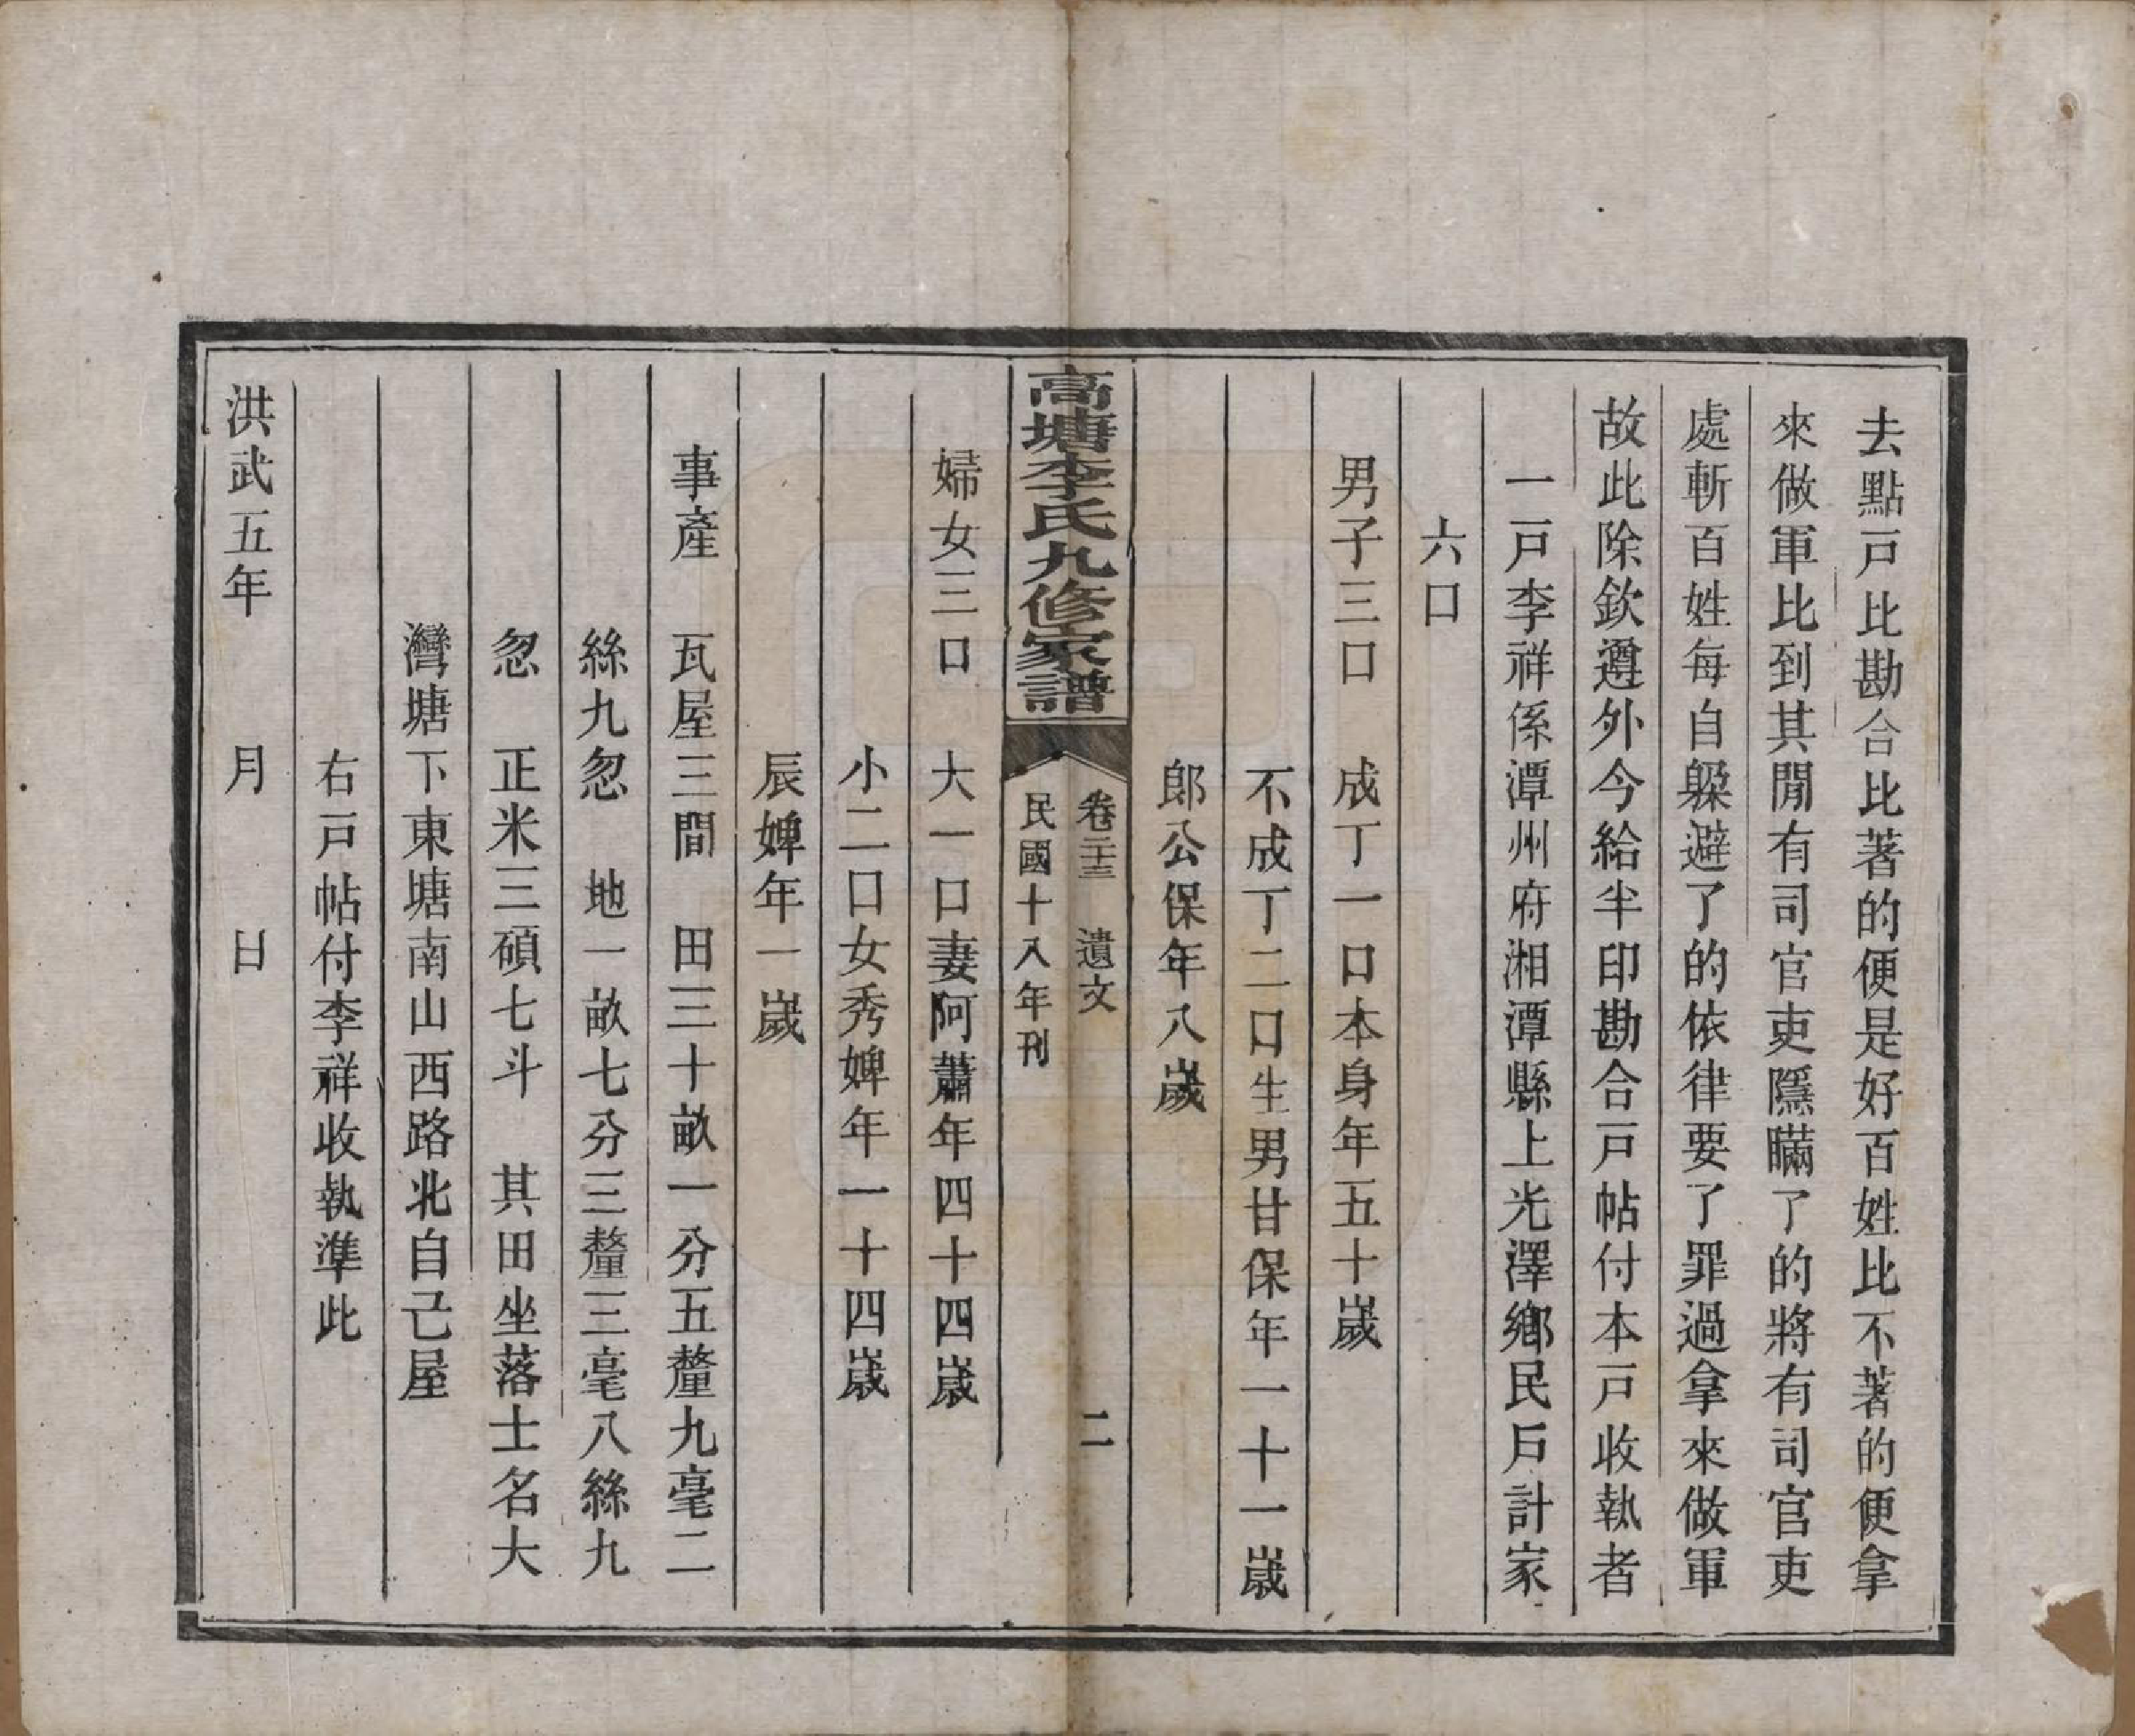 去點戸比勘合比著的便是好百姓比不著的便拿
來做軍比到其閒有司官吏隱瞞了的將有司官吏
處斬百姓每自躱避了的依律要了罪過拿來做軍
故此除欽遵外今給半印勘合戸帖付本戸收執者
一戸李祥係潭州府湘潭縣上光澤鄉民戸計家
六口
男子三口　成丁一口本身年五十歲
不成丁二口生男甘保年一十一歲
郞公保年八歲
高塘李氏九修家譜
卷二十三　遺文　二
民國十八年刊
婦女三口　大一口妻阿蕭年四十四歲
小二口女秀婢年一十四歲
辰婢年一歲
事產　瓦屋三間　田三十畝一分五釐九毫二
絲九忽　地一畝七分三釐三毫八絲九
忽　正米三碩七斗　其田坐落士名大
灣塘下東塘南山西路北自己屋
右戸帖付李祥收執準此
洪武五年　　月　　日